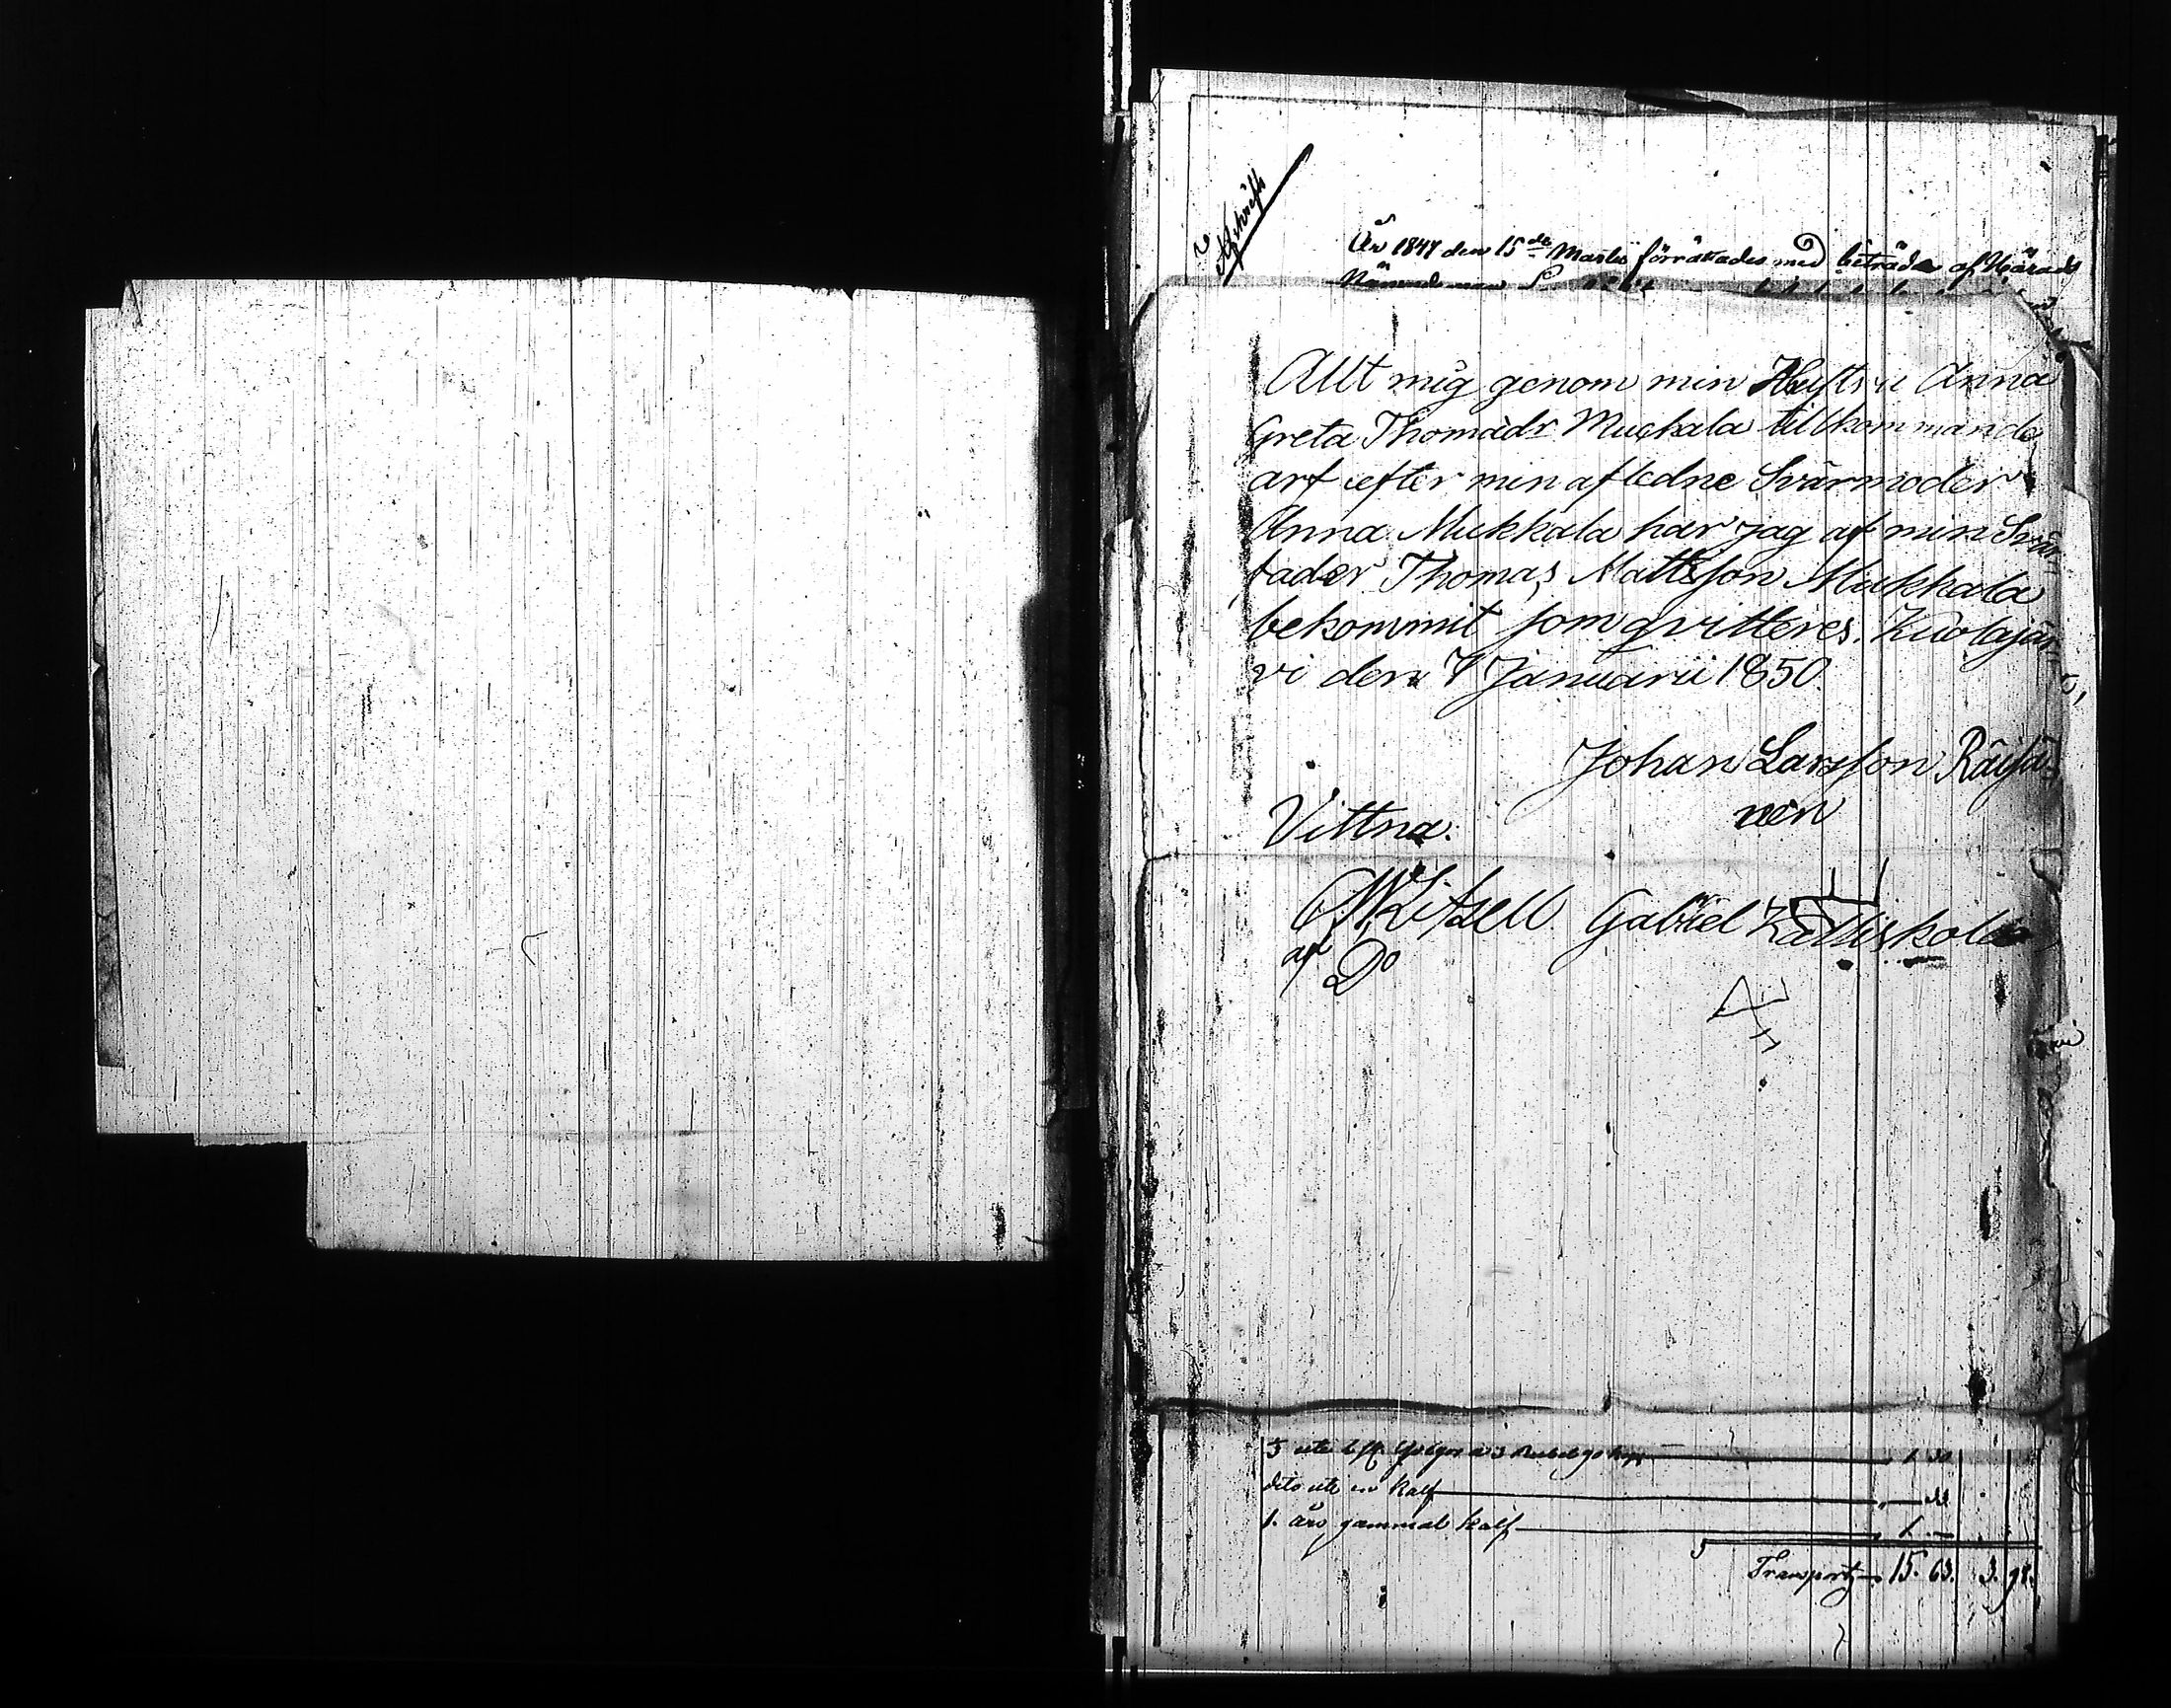 Afskrift
År 1847 den 15de Martii förrättades med biträde af Härads
Nämndeman
Allt mig genom min Hustru Anna
Greta Thomädr Muckala tillkommande
arf efter min afledne Svärmoder
Anna Mukkala har jag af min Svär
fader Thomas Mattsson Mukkala
bekommit som qvitteres. Kuolajär
vi den 7 Januarii 1850
Johan Larsson Räisä
nen
Vittna:
Gabriel
af Do
dito ute en kalf
1. års gammal kalf 1. —
Transport 15. 63. 3. 98.